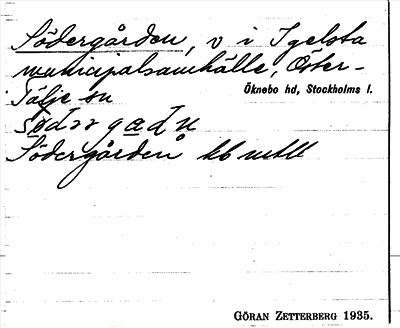 Södergården, v i Igelsta
municipalsamhälle, Öster-
Tälje sn
Öknebo hd, Stockholms l.
Södergården kb
GÖRAN ZETTERBERG 1935.